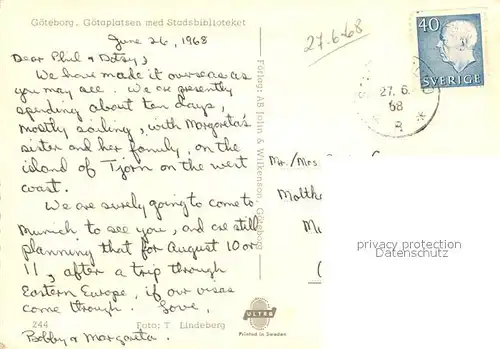 Göteborg. Götaplatsen med Stadsbiblioteket
June 26, 1968
27.6.68
40
SVERIGE
27. 6.
68
Dear Phil & Dotsy,
We have made it overseas as
you may see. We are presently
spending about ten days,
mostly sailing, with Margareta's
sister and her family, on the
island of Tjorn on the west
coast.
We are surely going to come to
Munich to see you, and are still
planning that for August 10 or
11, after a trip through
Eastern Europe, if our visas
come through. Love,
Bobby & Margareta.
Förlag: AB Jolin & Wilkenson, Göteborg
Mr./Mrs
privacy protection
Datenschutz
244
Foto: T. Lindeberg
ULTRA
Printed in Sweden